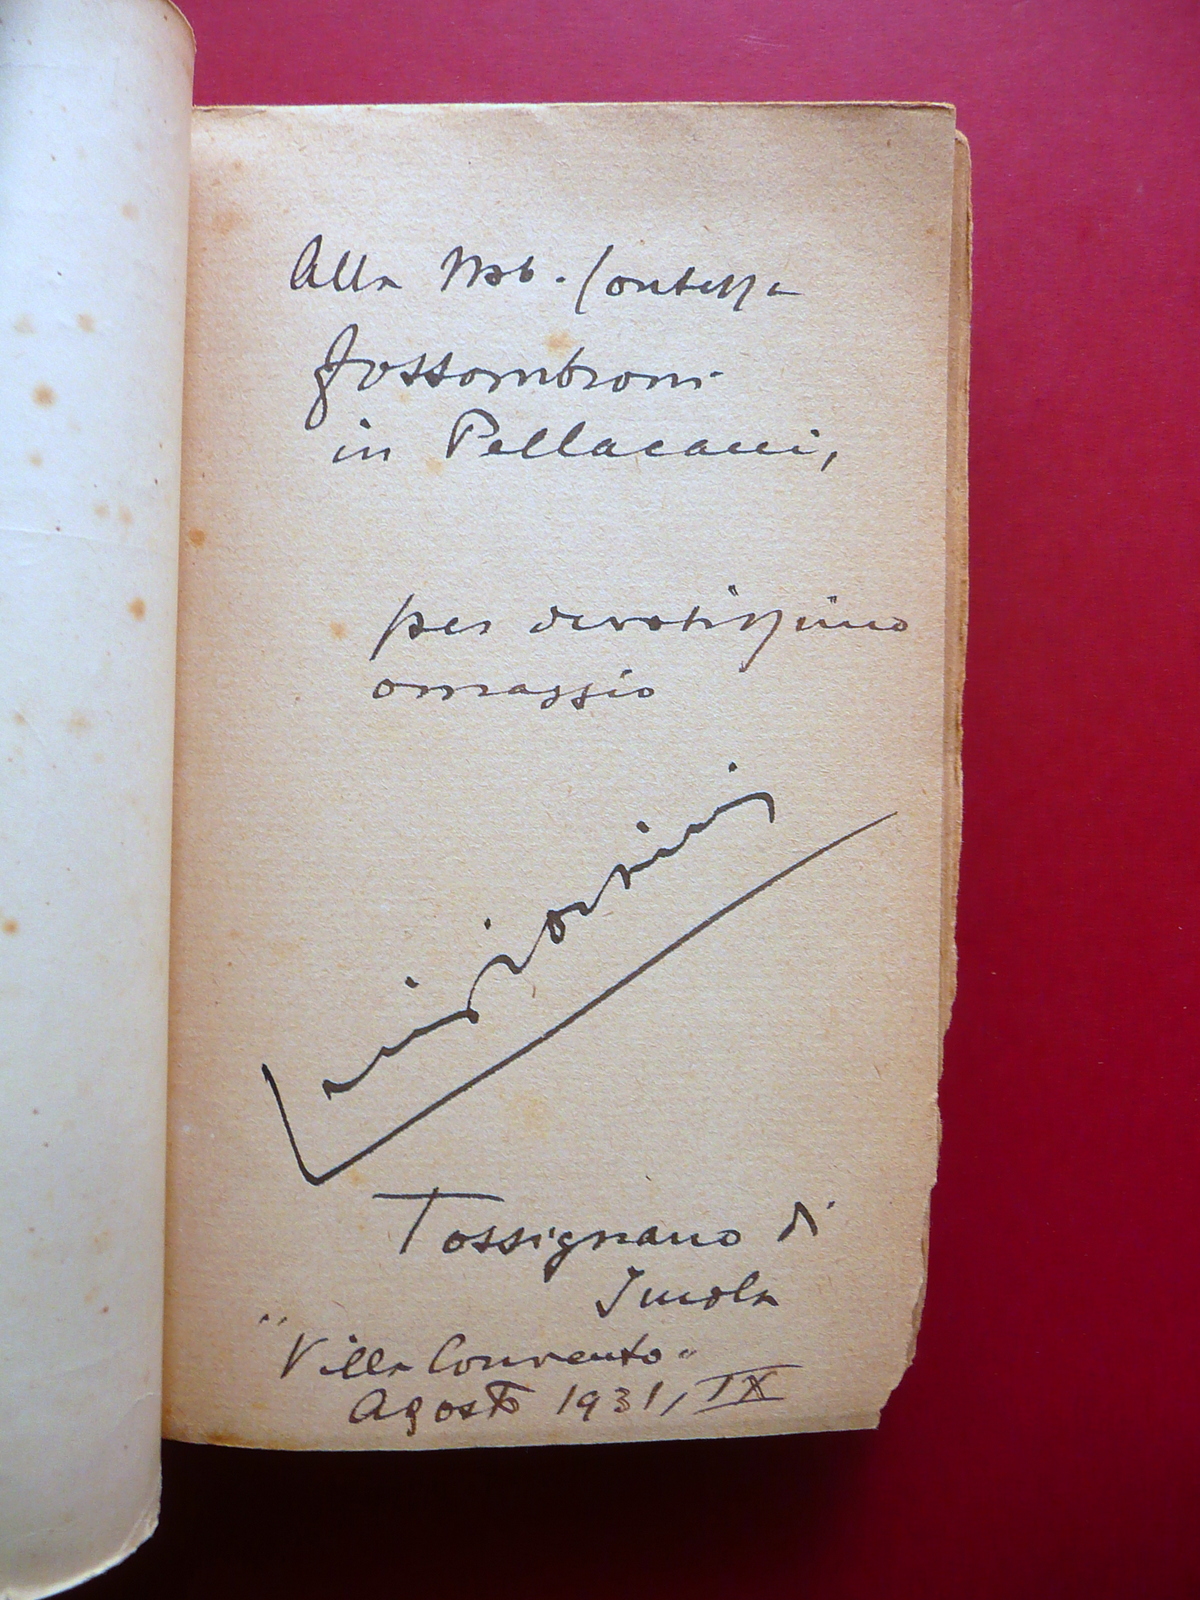 Alla Nob. Contessa
Fossombroni
in Pellacani,
per devotissimo
omaggio
Luigi Orsini
Tossignano di
Imola
"Villa Convento"
Agosto 1931, IX